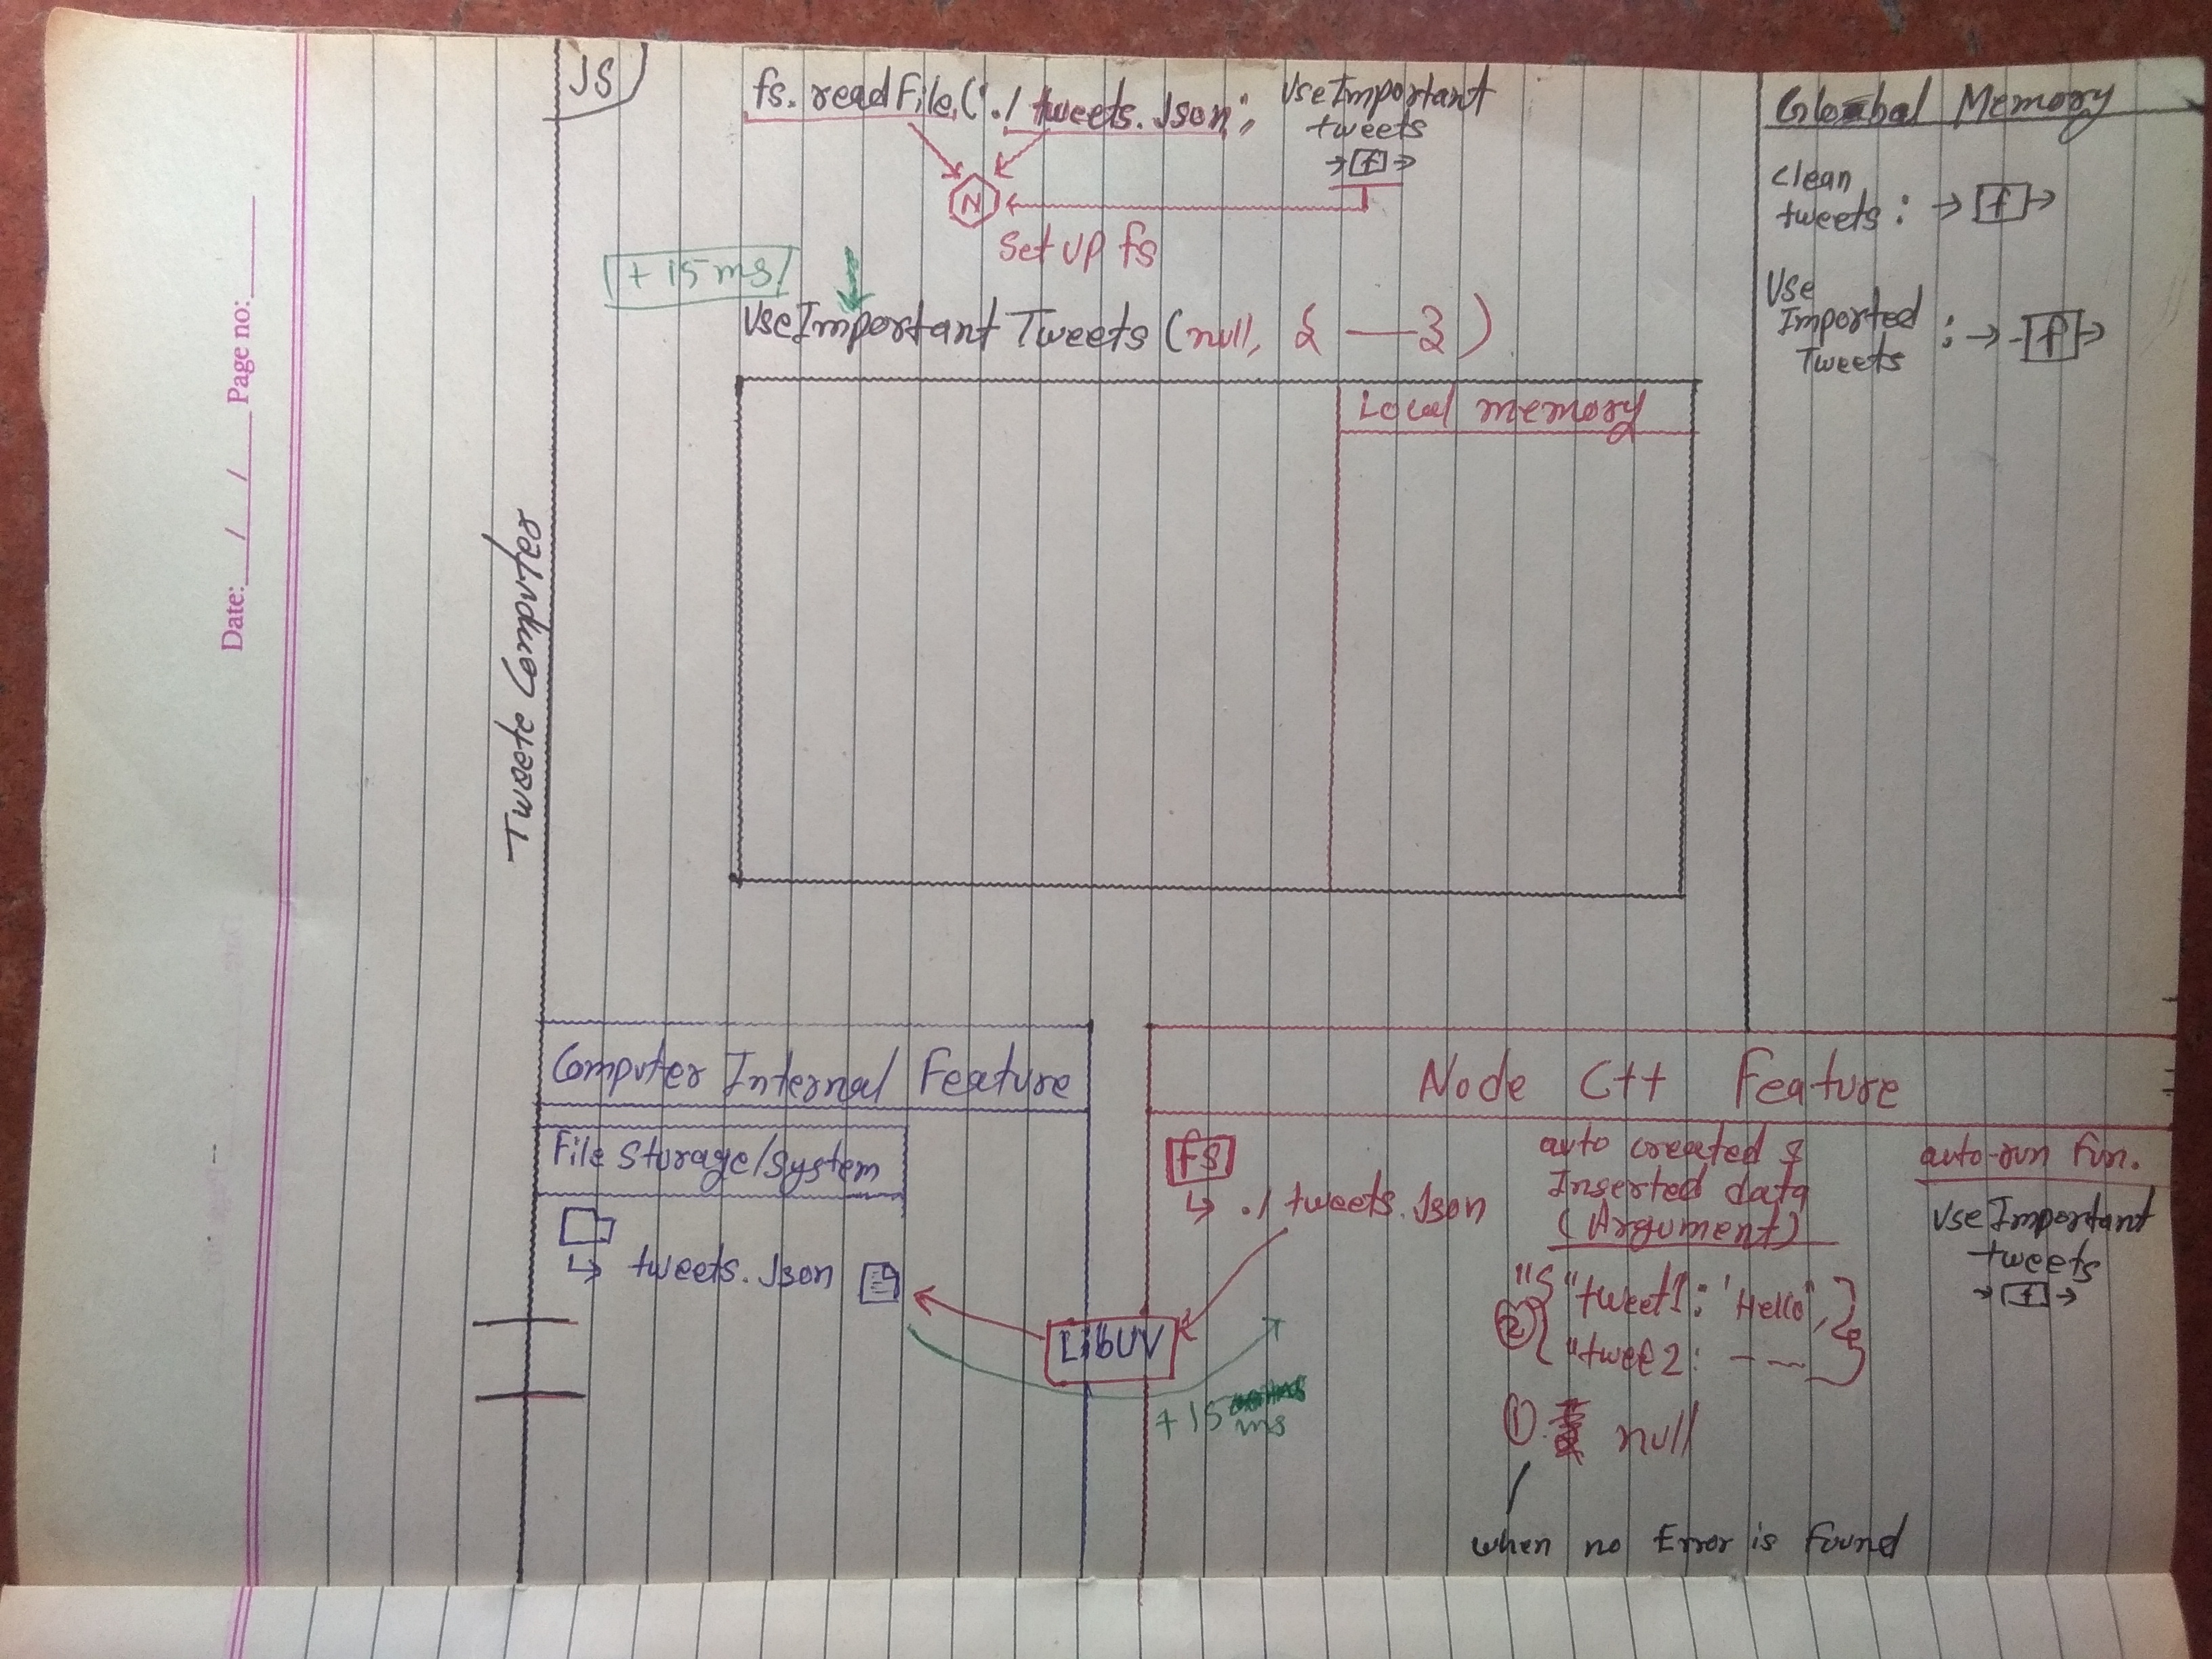 JS
fs.readFile("./tweets.Json", UseImportant
tweets
→[f]→
N
Set up fs
+15ms
UseImportant Tweets (null, { — })
Local memory
Global Memory
Clean
tweets: →[f]→
Use
Imported
Tweets : →[f]→
Tweete Computer
Page no:
Date: / /
Computer Internal Feature
File Storage/System
↳ tweets.Json
LibUV
+15
ms
Node C++ Feature
fs
↳ ./tweets.Json
auto created &
Inserted data
(Argument)
② { "tweet1: 'Hello",
"twee2: – —— }
① null
when no Error is Found
auto-run Fun.
UseImportant
tweets
→[f]→